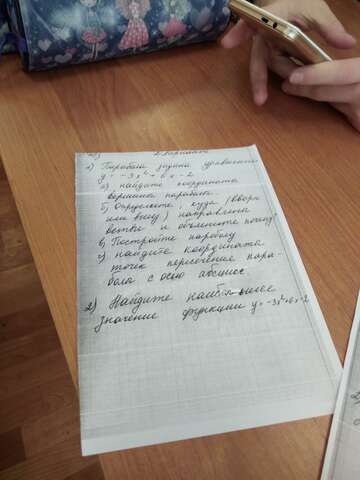 2 вариант
1) Парабола задана уравнением
y = -3x² + 6x - 2
а) найдите координаты
вершины параболы.
б) Определите куда (вверх
или вниз) направлены
ветви и объясните почему?
в) Постройте параболу
г) найдите координаты
точек пересечения пара-
болы с осью абсцисс.
2) Найдите наибольшее
значение функции y = -3x²+6x-2